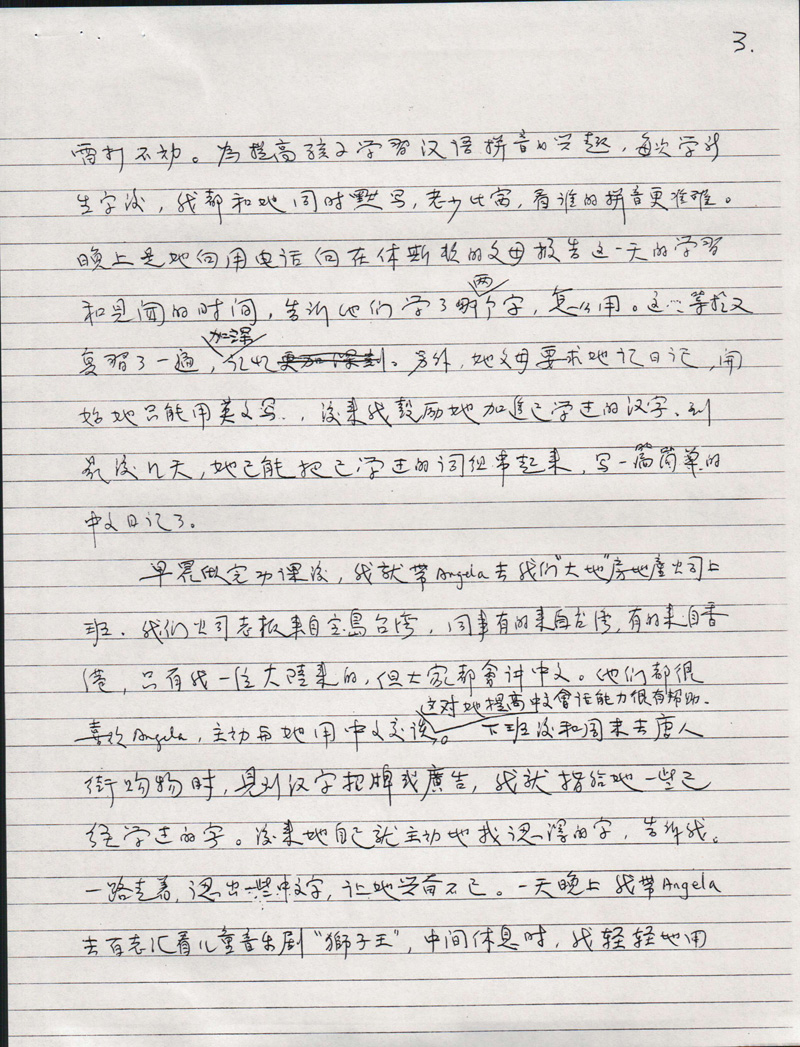 3.
雷打不动。为提高孩子学習汉语拼音的兴趣，每次学讨
生字後，我都和她同时默写，老少比赛，看谁的拼音更准确。
晚上是她向用电话向在休斯敦的父母报告这一天的学習
和見闻的时间，告诉他们学了那两个字，怎么用。这些等於又
复習了一遍，加深记忆更加深刻。另外，她父母要求她记日记，開
始她只能用英文写，後来我鼓励她加進已学过的汉字，到
最後几天，她已能把已学过的词组串起来，写一篇简单的
中文日记了。
早晨做完功课後，我就带Angela去我们"大地"房地產公司上
班。我们公司老板来自宝島台湾，同事有的来自台湾，有的来自香
港，只有我一位大陸来的，但大家都會讲中文。他们都很
喜欢Angela，主动与她用中文交谈，这对她提高中文會话能力很有帮助。下班後和周末去唐人
街购物时，見到汉字招牌或廣告，我就指给她一些已
经学过的字。後来她自己就主动地找認得的字，告诉我。
一路走着，認出一些中文字，让她兴奋不已。一天晚上我带Angela
去百老汇看儿童音乐剧"獅子王"，中间休息时，我轻轻地用